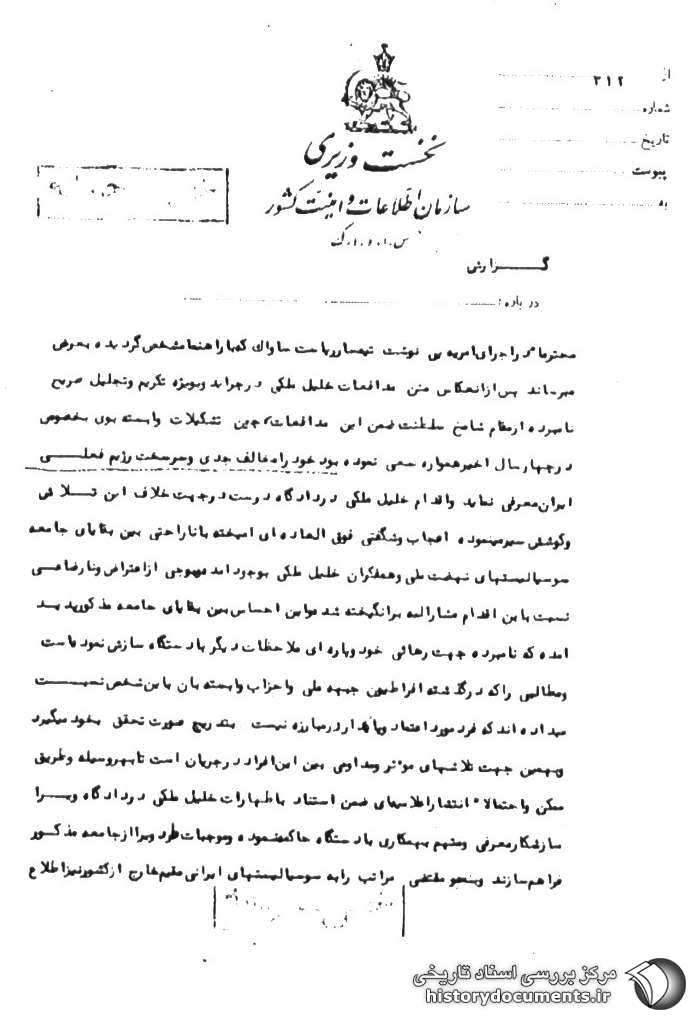 از ۳۱۲
شماره
تاریخ
پیوست
به
نخست وزیری
سازمان اطلاعات و امنیت کشور
س.ا.و.ا.ک
گزارش
درباره:
محترما در اجرای امریه پی نوشت تیمسار ریاست ساواک که با راهنما مشخص گردیده بعرض
میرساند پس از انعکاس متن مدافعات خلیل ملکی در جراید و بویژه تکریم و تجلیل صریح
نامبرده از مقام شامخ سلطنت ضمن این مدافعات، چون تشکیلات وابسته بوی بخصوص
در چهار سال اخیر همواره سعی نموده بود خود را مخالف جدی و سرسخت رژیم فعلی
ایران معرفی نماید و اقدام خلیل ملکی در دادگاه درست در جهت خلاف این تلاش
و کوشش سیر مینموده اعجاب و شگفتی فوق العاده ای امیخته با ناراحتی بین بقایای جامعه
سوسیالیستهای نهضت ملی و همفکران خلیل ملکی بوجود امد و موجی از اعتراض و نارضائی
نسبت باین اقدام مشارالیه برانگیخته شد و این احساس بین بقایای جامعه مذکور پدید
امده که نامبرده جهت رهائی خود و پاره ای ملاحظات دیگر با دستگاه سازش نموده است
و مطالبی را که در گذشته افراطیون جبهه ملی و احزاب وابسته بان باین شخص نسبت
میداده اند که فرد مورد اعتماد و پایدار در مبارزه نیست بتدریج صورت تحقق بخود میگیرد
و بهمین جهت تلاشهای موثر و مداومی بین این افراد در جریان است تا بهر وسیله و طریق
ممکن و احتمالاً انتشار اعلامیه‌ای ضمن استناد باظهارات خلیل ملکی در دادگاه ویرا
سازشکار معرفی و متهم بهمکاری با دستگاه حاکمه نموده و موجبات طرد ویرا از جامعه مذکور
فراهم سازند و بنحو مقتضی مراتب را به سوسیالیستهای ایرانی مقیم خارج از کشور نیز اطلاع
مرکز بررسی اسناد تاریخی
historydocuments.ir